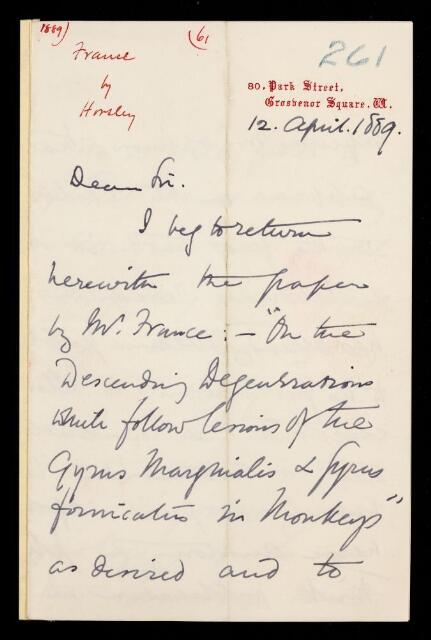 1889)
(61
261
France
by
Horsley
80, Park Street,
Grosvenor Square, W.
12. April. 1889.
Dear Sir.
I beg to return
herewith the paper
by Mr. France: — "On the
Descending Degenerations
which follow lesions of the
Gyrus Marginalis & Gyrus
fornicatus in Monkeys"
as desired and to